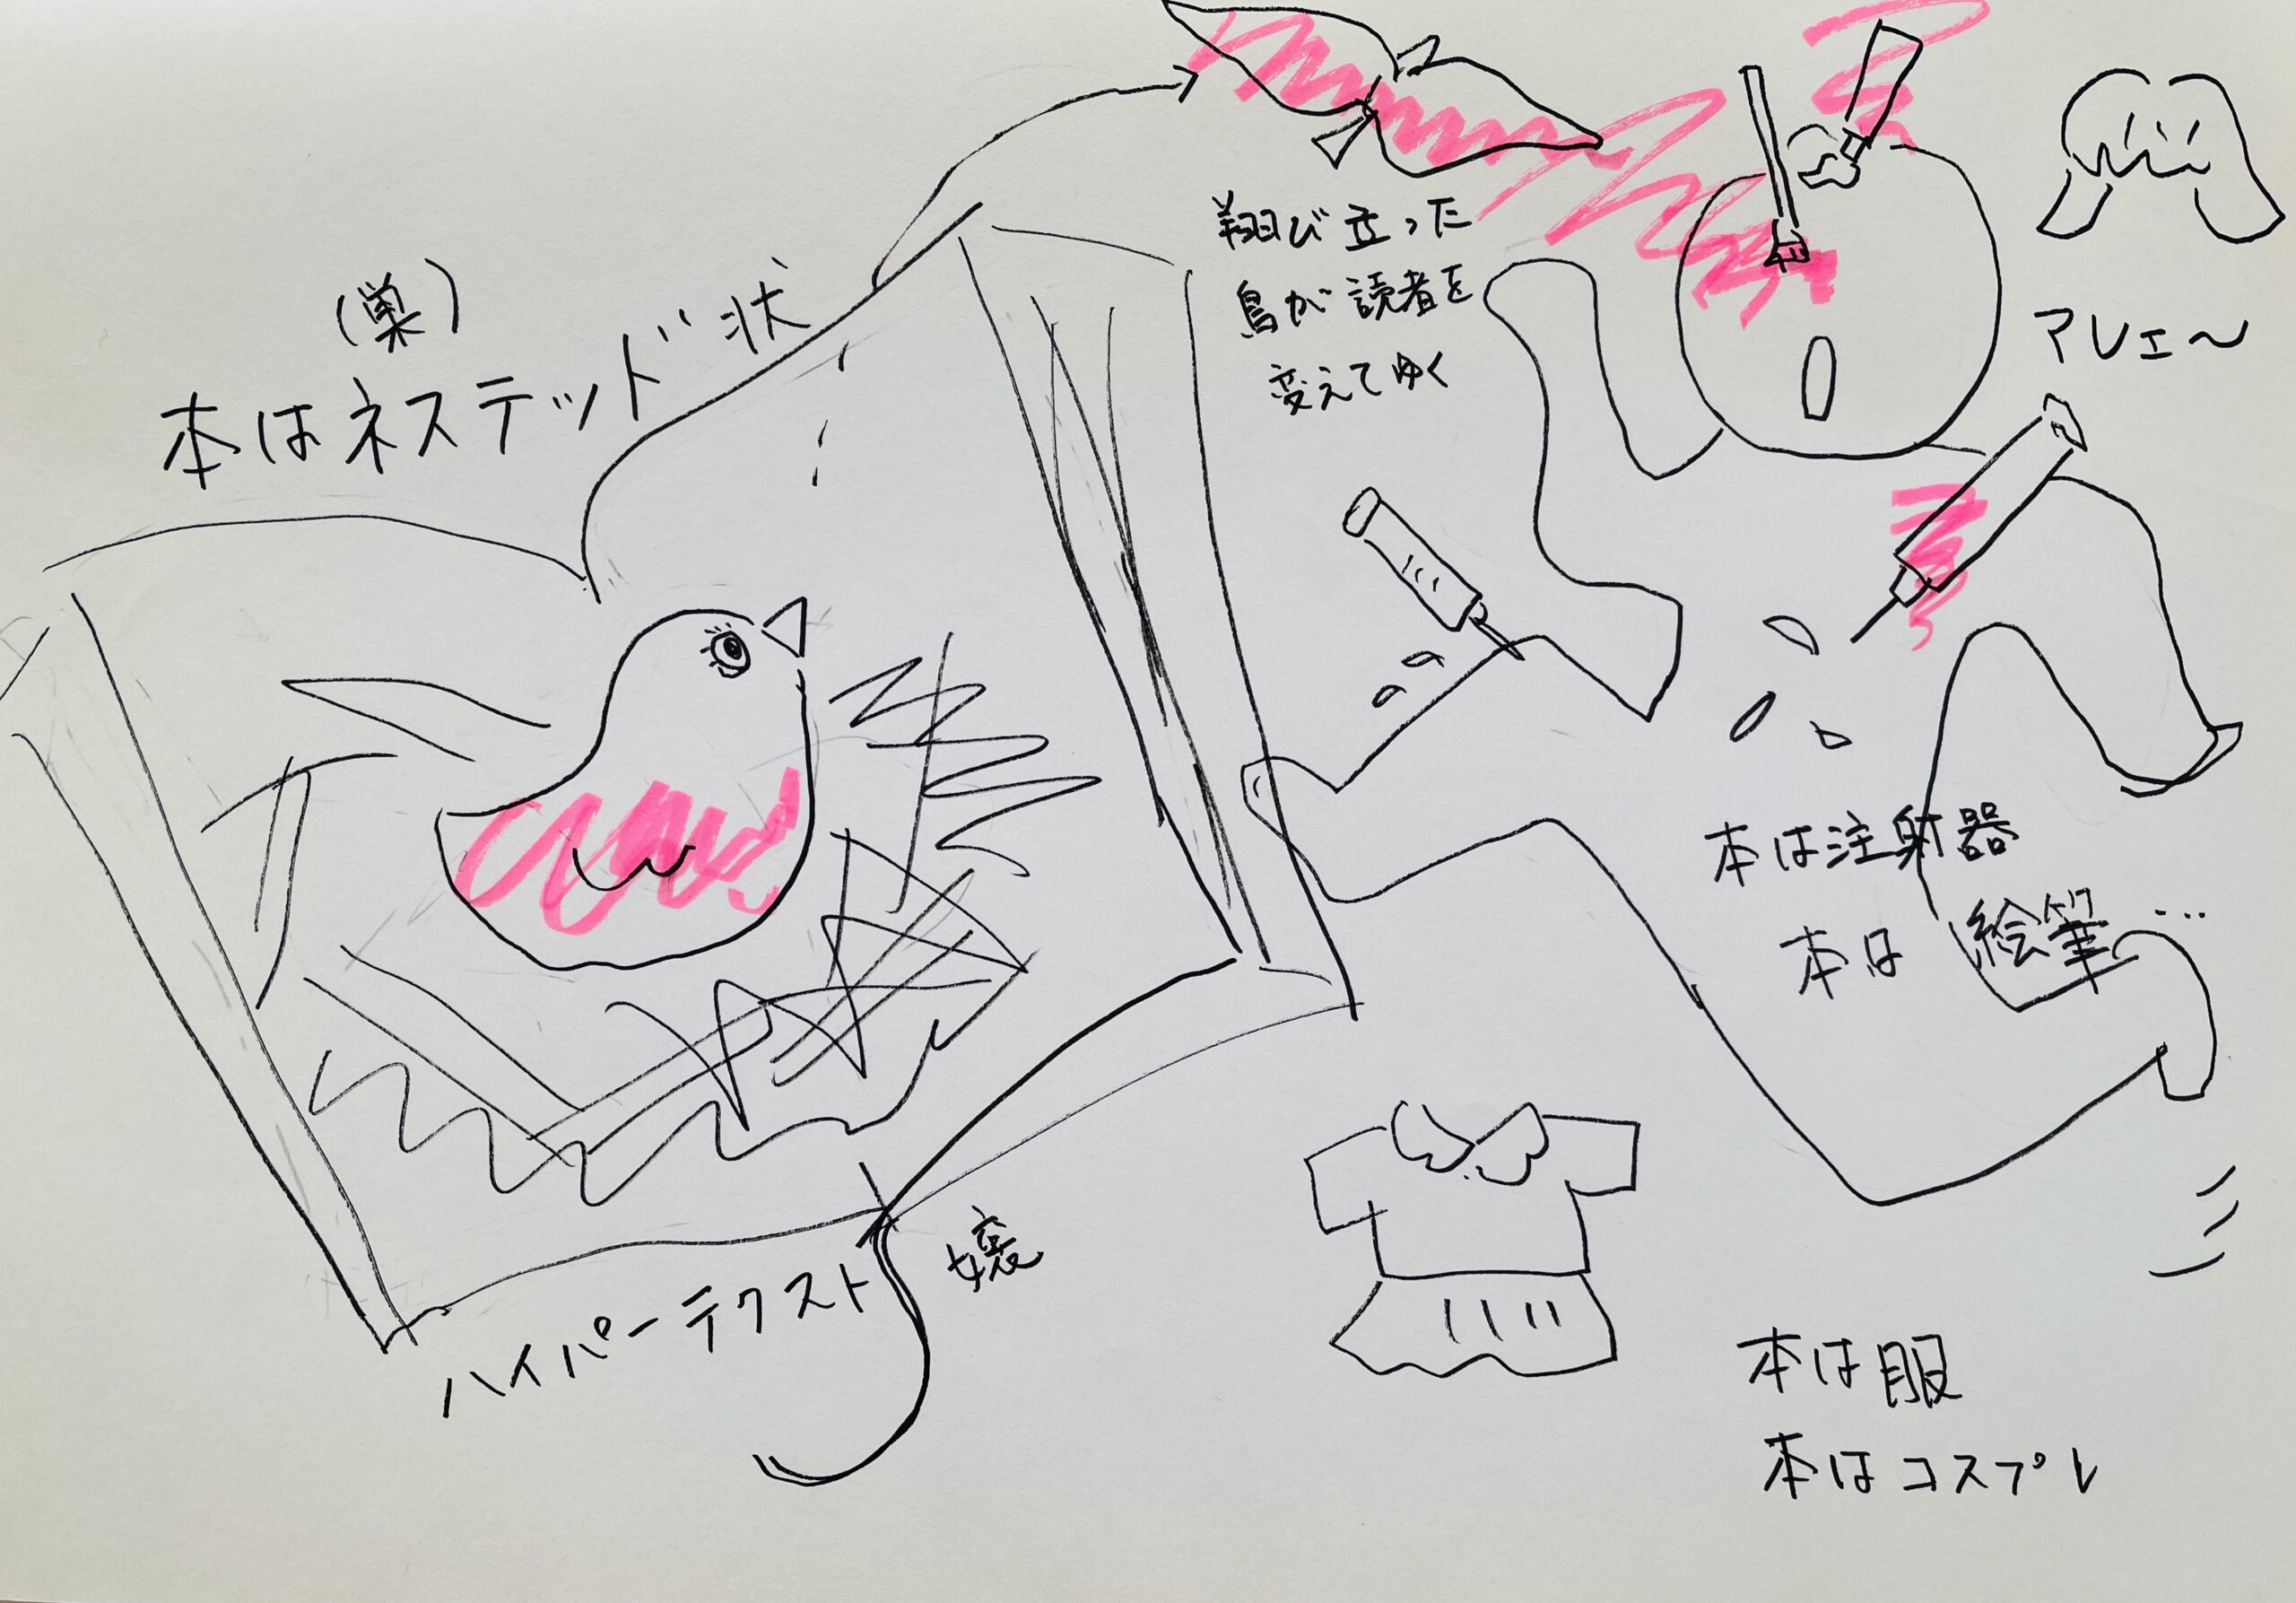 (巣)
本はネステッド状
翔び立った
鳥が読者を
変えてゆく
アレェ〜
本は注射器
本は絵筆…
ハイパーテクスト嬢
本は服
本はコスプレ